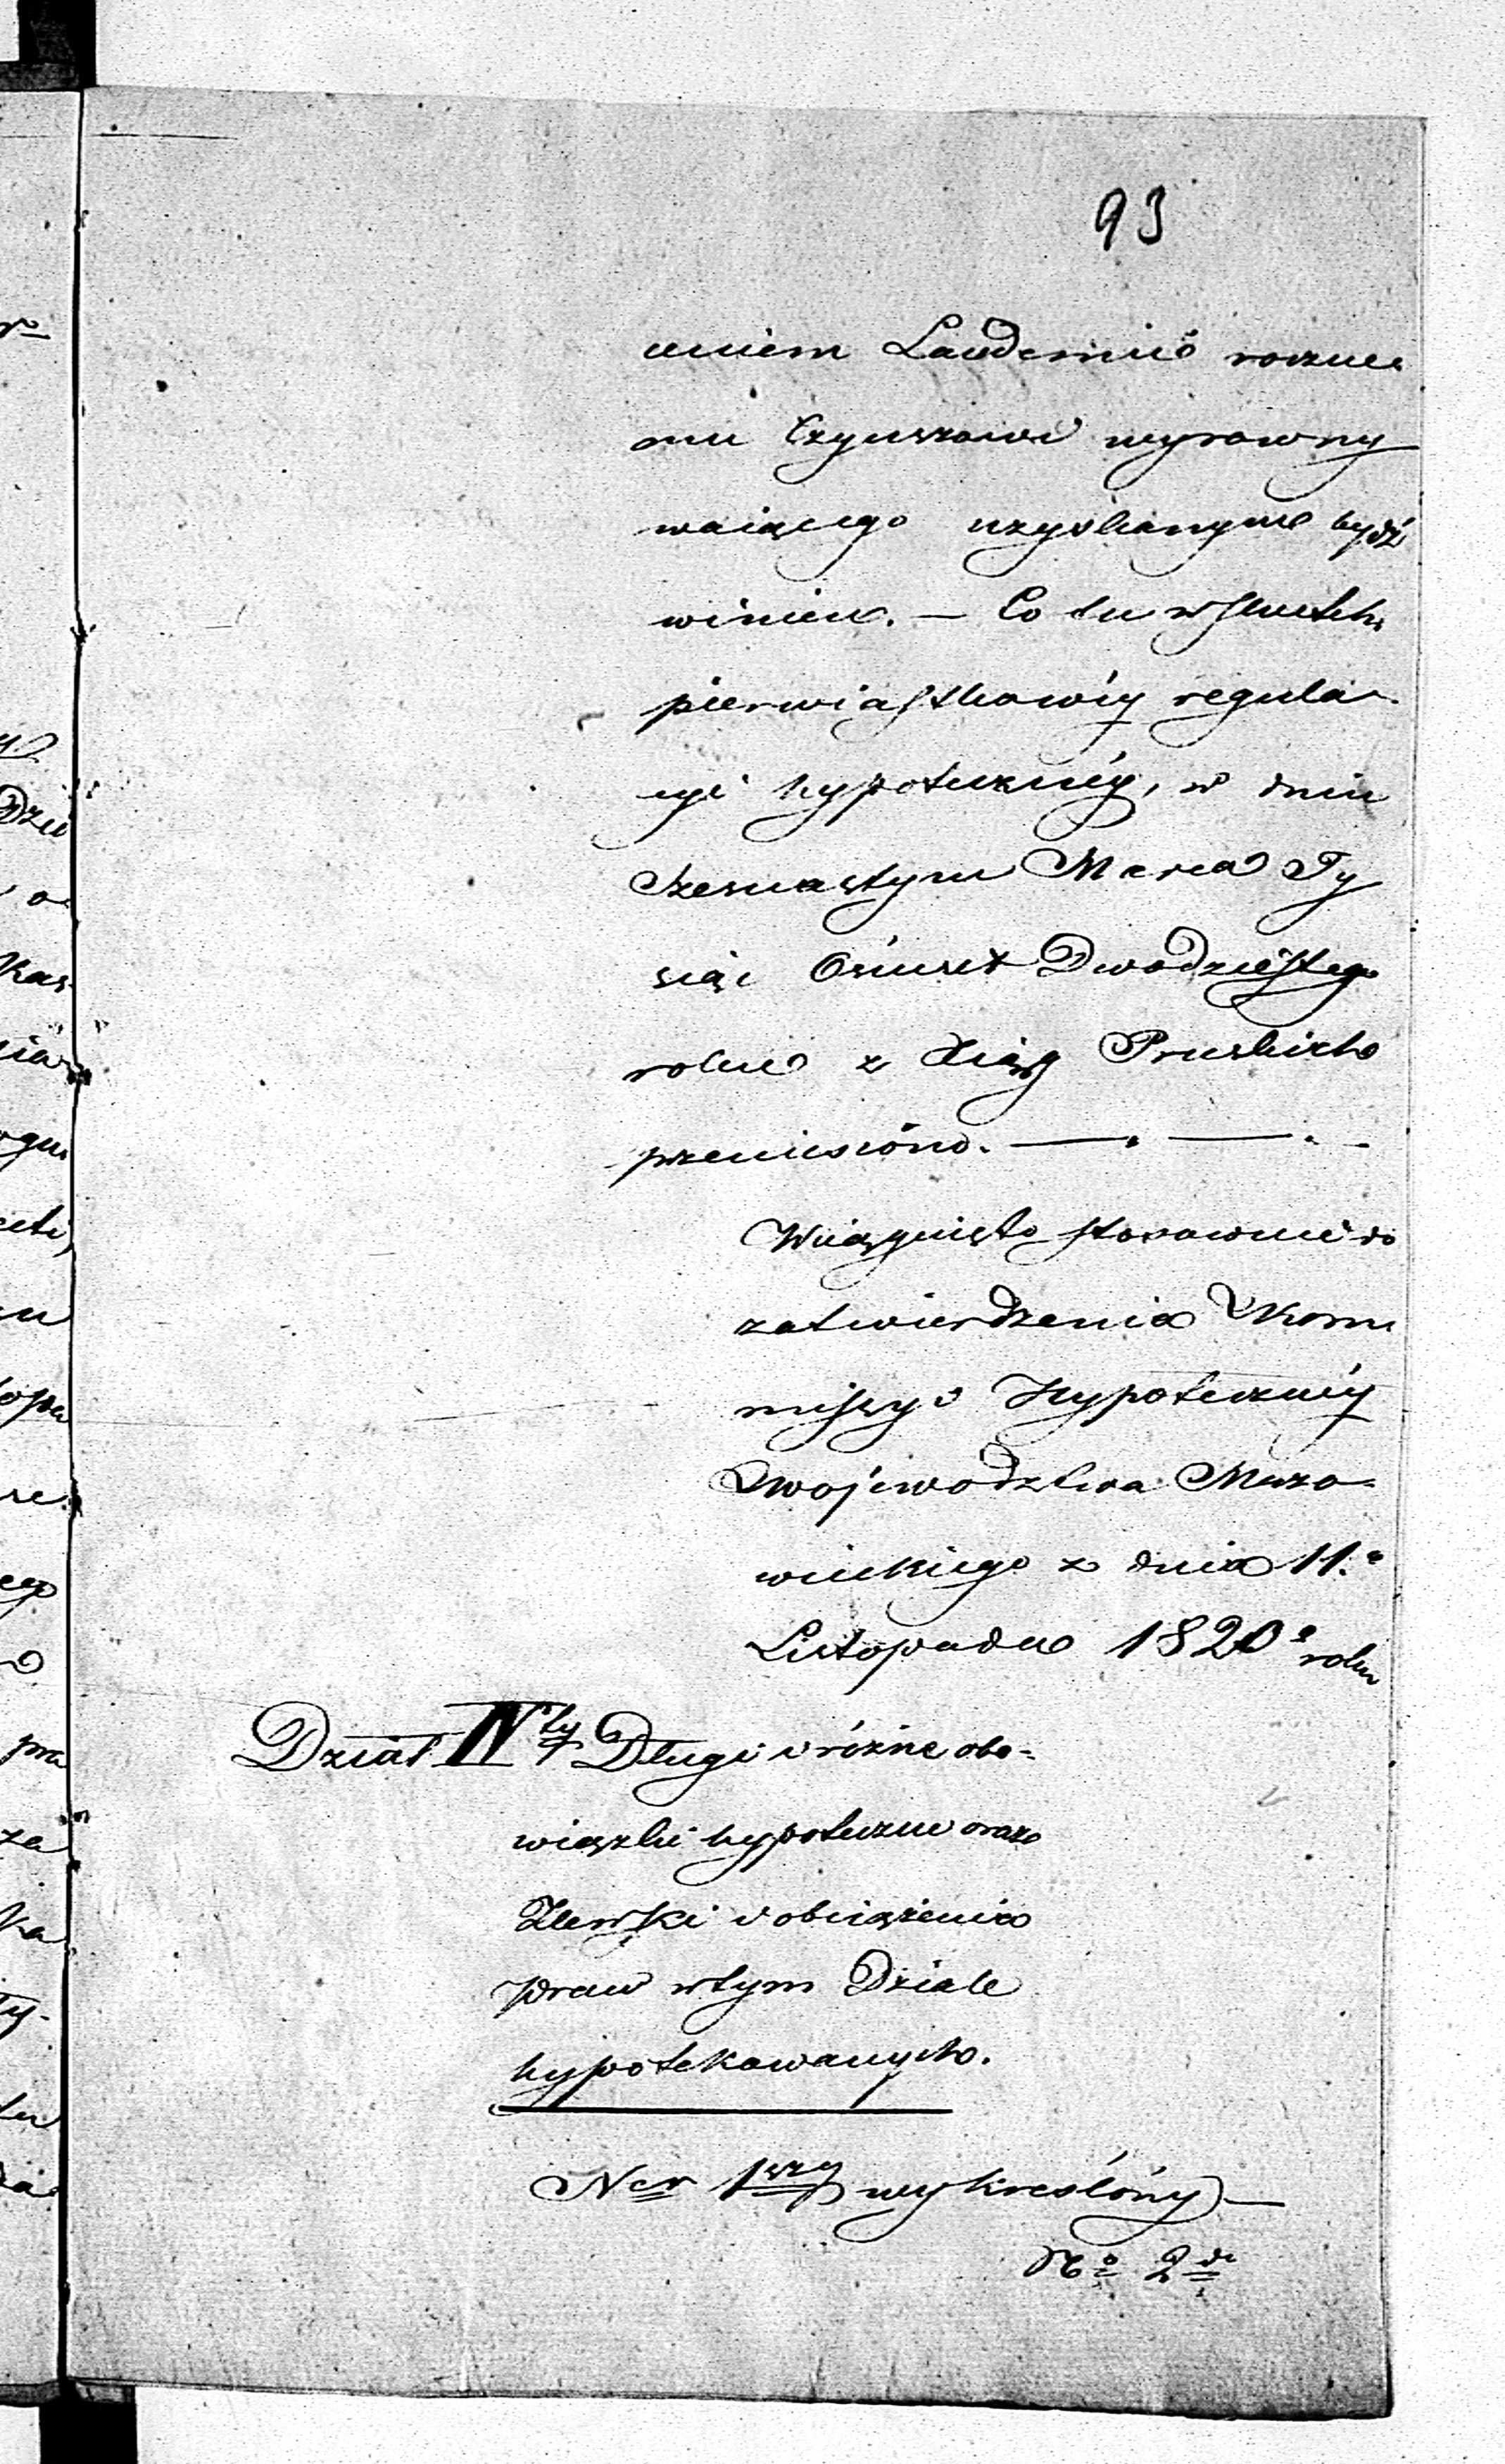 93
ceniem Laudemio roczne
mu Czynszowi wyrowny
waiącego uzyskanym bydź
winien. — Co tu w skutek
pierwiastkowéy regula-
cyi hypoteczney, w dniu
Szesnastym Marca Ty
siąc Osmset Dwódziestego
roku z Xiąg Pruskich
przeniesióno. — . — . -
Wciągnięto stosownie do
zatwierdzenia Kom
missyi Hypoteczney
Województwa Mazo-
wieckiego z dnia 11.º
Listopada 1820º roku
Dział IVty Długi i różne obo-
wiązki hypoteczne oraz
Zlewki i obciążenia
praw w tym Dziale
hypotekowanych.
Ner 1szy wykreślóny —
No 2do